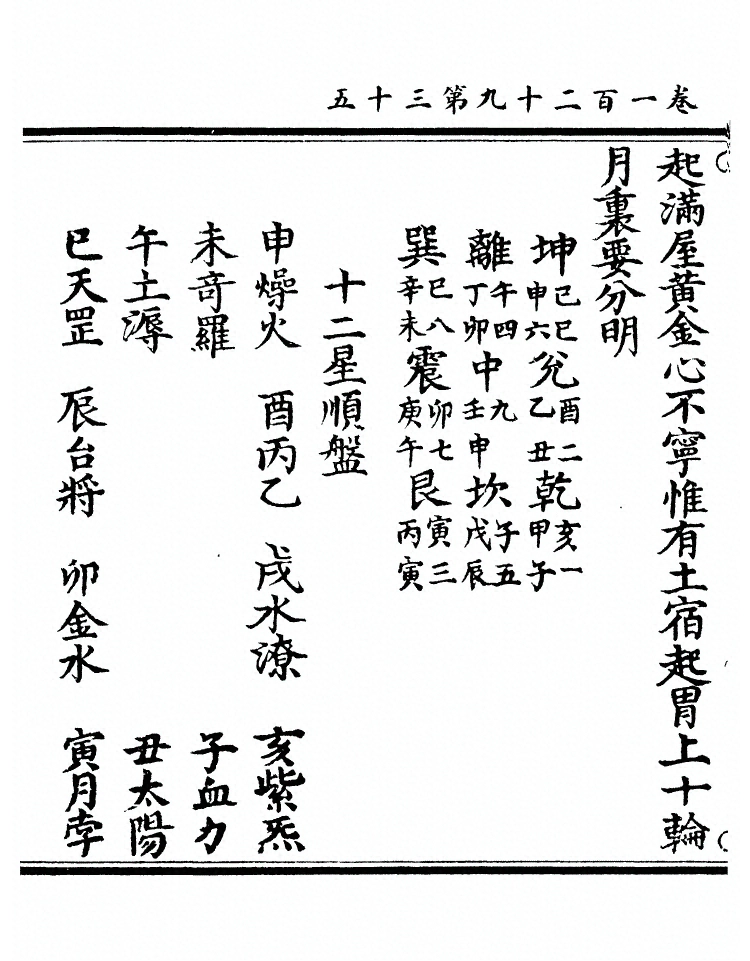 卷一百二十九第三十五
起滿屋黃金心不寧惟有土宿起胃上十輪
月裏要分明
坤己巳申六兌酉二乙丑乾亥一甲子
離午四丁卯中九壬申坎子五戊辰
巽巳八辛未震卯七庚午艮寅三丙寅
十二星順盤
申燥火 酉丙乙 戌水潦 亥紫炁
未奇羅 子血力
午土溽 丑太陽
巳天罡 辰台將 卯金水 寅月孛